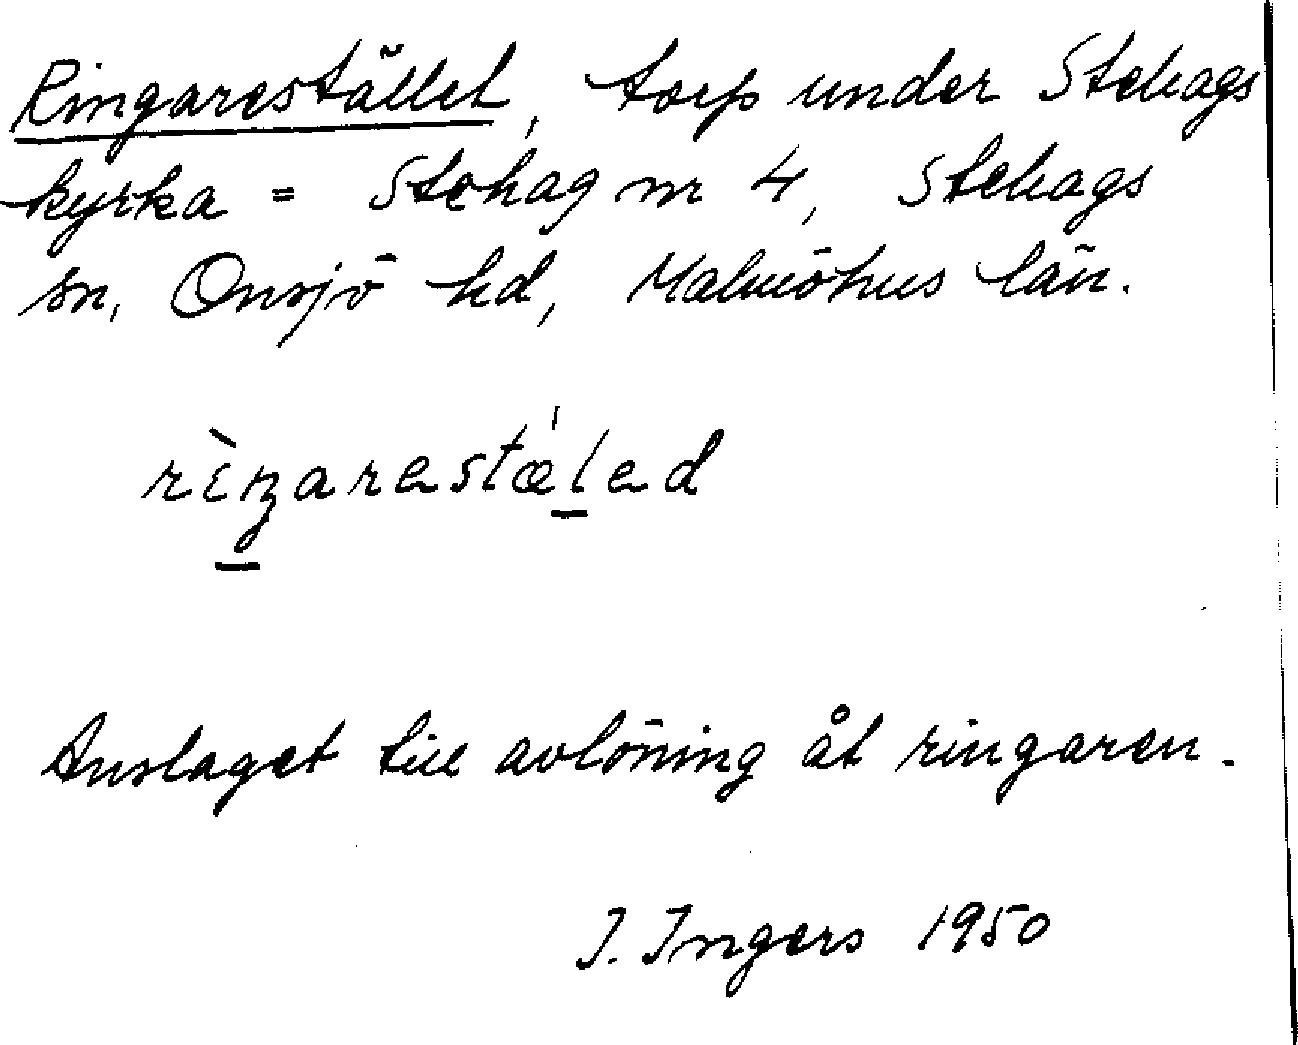 Ringarestället, torp under Stehags
kyrka = Stehag nr 4, Stehags
sn, Onsjö hd, Malmöhus län.
rìŋarestæ̍led
Anslaget till avlöning åt ringaren.
I. Ingers 1950